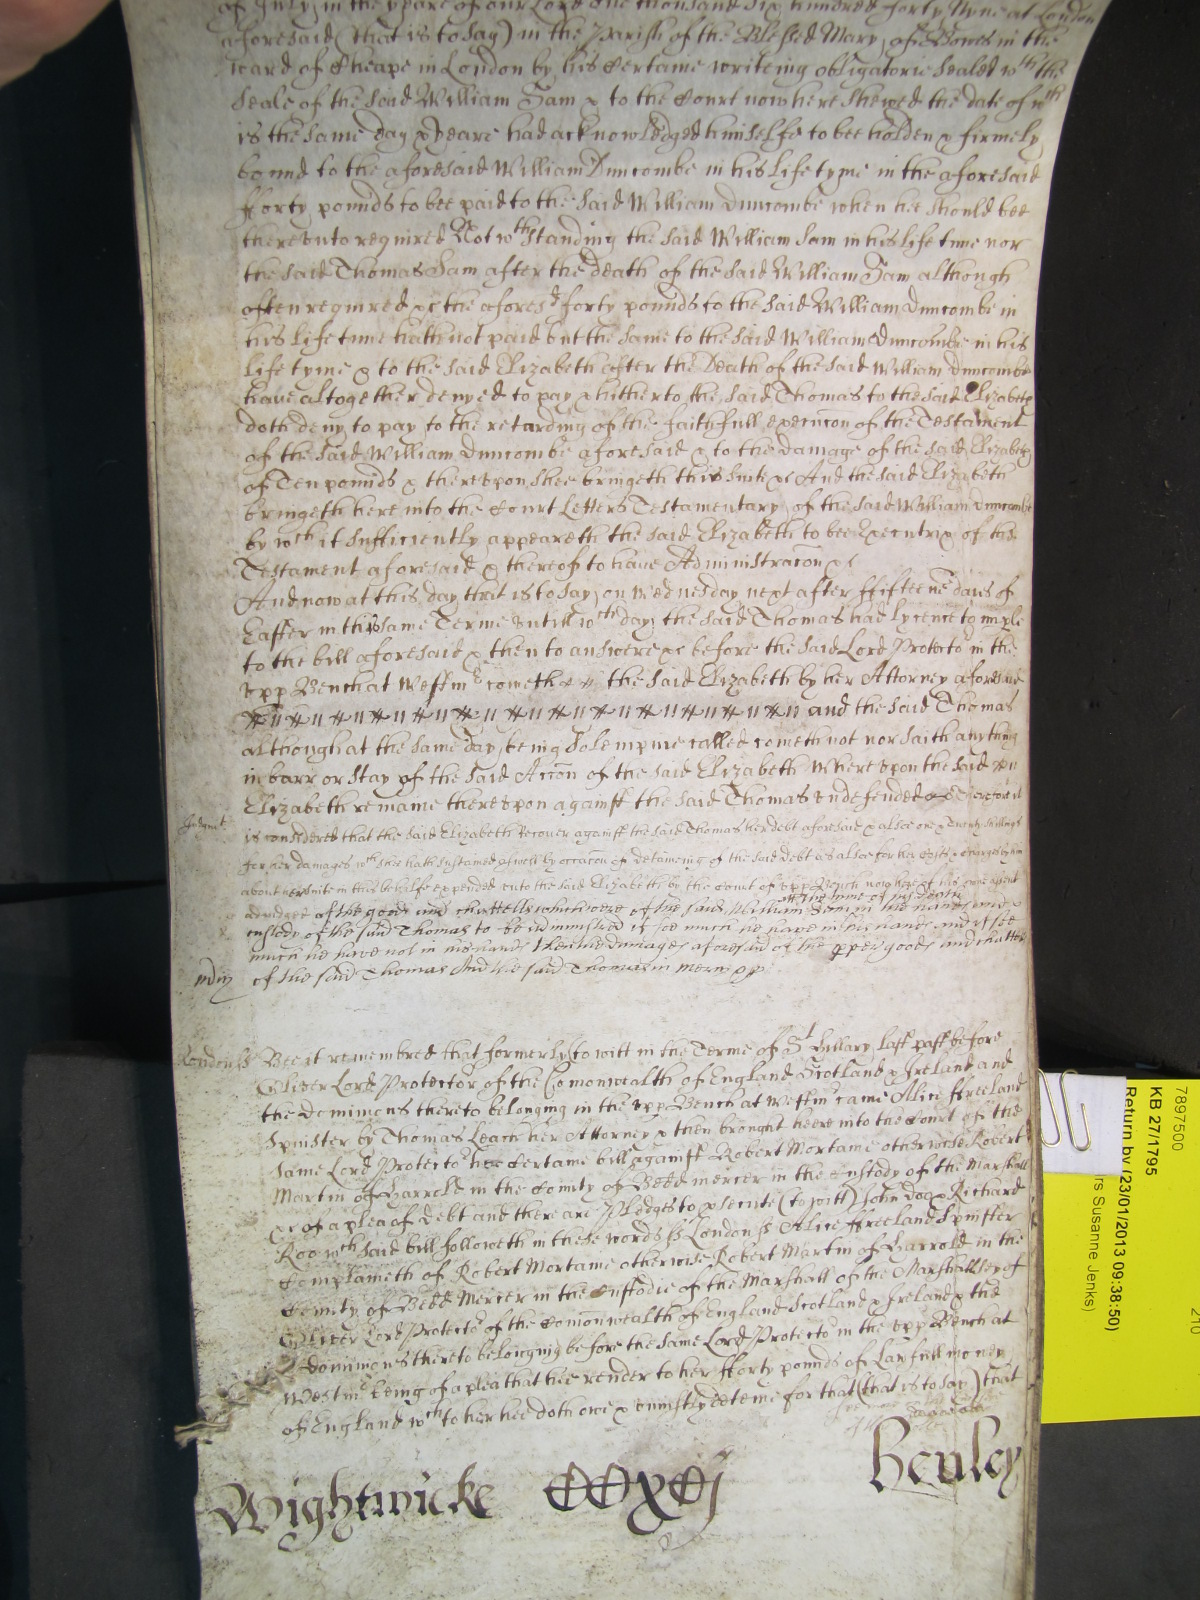 of July in the yeare of our Lord one thousand six hundred forty Nyne at London
aforesaid (that is to say) in the Parish of the Blessed Mary of Bowes in the
ward of Cheape in London by his Certaine writeing obligatorie sealed wth the
seale of the said William Sam & to the Court now here shewed the date of wch
is the same day & yeare had acknowledged himselfe to bee holden & firmely
bound to the aforesaid William Duncombe in his life tyme in the aforesaid
fforty pounds to bee paid to the said William Duncombe when hee should bee
thereunto required Notwthstanding the said William Sam in his life time nor
the said Thomas Sam after the death of the said William Sam although
often required &c the aforesd forty pounds to the said William Duncombe in
his life time hath not paid but the same to the said William Duncombe in his
life tyme & to the said Elizabeth after the Death of the said William Duncombe
have altogether denyed to pay & hitherto the said Thomas to the said Elizabeth
doth deny to pay to the retarding of the faithfull execucon of the Testament
of the said William Duncombe aforesaid & to the damage of the said Elizabeth
of Ten pounds & thereupon shee bringeth this suite &c And the said Elizabeth
bringeth here into the Court Letters Testamentary of the said William Duncombe
by wch it sufficiently appeareth the said Elizabeth to bee Executrix of the
Testament aforesaid & thereof to have Administracon &c
And now at this day that is to say on Wednesday next after ffifteene daies of
Easter in this same Terme untill wch day the said Thomas had lycence to imple
to the bill aforesaid & then to answere &c before the said Lord Protector in the
upp Bench at Westmr cometh the said Elizabeth by her Attorney aforesaid
and the said Thomas
although at the same day being solempnie called cometh not nor saith anything
in barr or stay of the said Accon of the said Elizabeth Whereupon the said
Elizabeth remaine thereupon against the said Thomas undefended &c Therefore it
Judgmt is considered that the said Elizabeth Recover against the said Thomas her debt aforesaid & alsoe Twenty shillings
for her damages wch shee hath susteined aswell by occacon of deteineing of the said debt as alsoe for her costs & charges by him
about her suite in this behalfe expended unto the said Elizabeth by the Court of upp Bench now here of his owne assent
adiudged of the goods and chattells which were of the said William Sam att the time of his death in the hands and
custody of the said Thomas to be administred if soe much he have in his hands and if soe
much he have not in his hands Then the damages aforesaid of the pper goods and chattells
mdia of the said Thomas And the said Thomas in mercy &c
London ss Bee it remembred that formerly to witt in the Terme of St Hillary last past before
Oliver Lord Protector of the Comonwealth of England Scotland & Ireland and
the dominions thereto belonging in the upp Bench at Westmr came Alice ffreeland
Spinster by Thomas Leach her Attorney & then brought heere into the Court of the
same Lord Protector her Certaine bill against Robert Mortame otherwise Robert
Martin of Harrold in the County of Bedd mercer in the custody of the Marshall
&c of a plea of debt and there are Pledges to psecute (to witt) John Doe & Richard
Roo wch said bill followeth in these words ss London ss Alice ffreeland Spinster
Complaineth of Robert Mortame otherwise Robert Martin of Harrold in the
County of Bedd Mercer in the Custodie of the Marshall of the Marshallsey of
Oliver Lord Protector of the Comonwealth of England Scotland & Ireland & the
dominions thereto belonging before the same Lord Protector in the upp Bench at
Westmr being of a plea that hee render to her fforty pounds of Lawfull money
of England wch to her hee doth owe & uniustly deteine for that (that is to say) that
Wightwicke CCxCj Henley
7897500
KB 27/1795
Return by (23/01/2013 09:38:50)
rs Susanne Jenks)
210